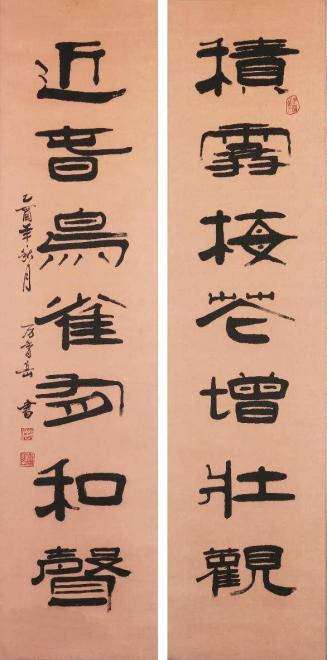 積雪梅花增壯觀
近春鳥雀有和聲
乙酉年秋月
書